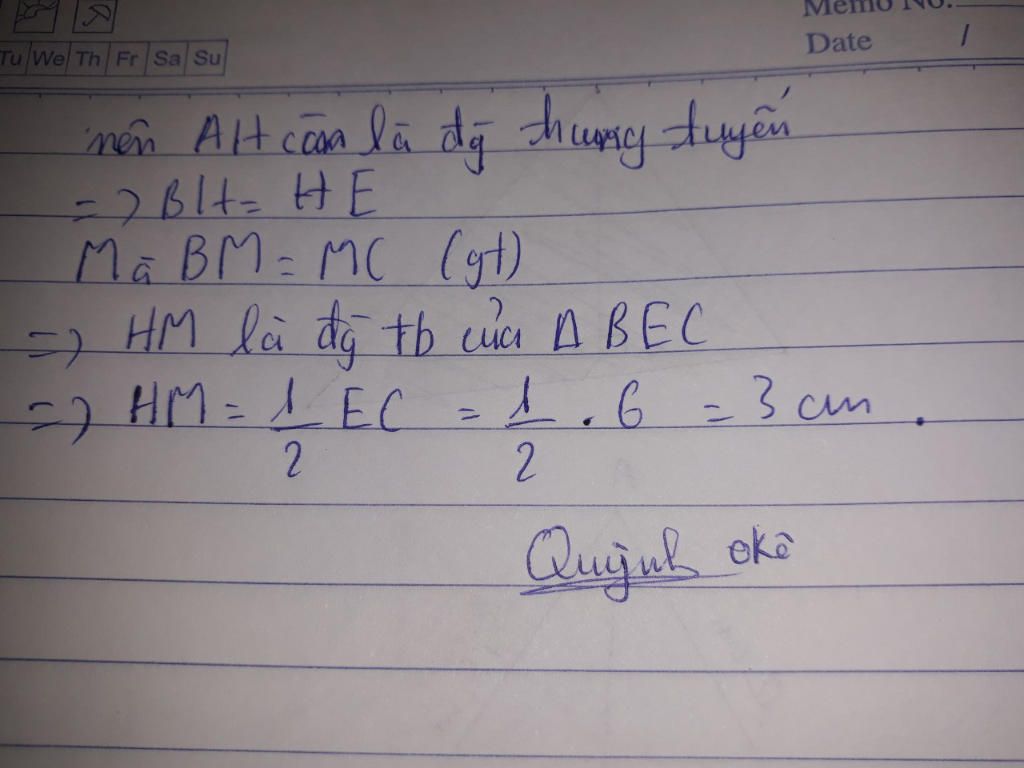 Memo No.
Date /
Tu We Th Fr Sa Su
nên AH còn là đg̃ trung tuyến
=> BH = HE
Mà BM = MC (gt)
=> HM là đg̃ tb của Δ BEC
=> HM = 1/2 EC = 1/2 . 6 = 3 cm .
Quỳnh okê